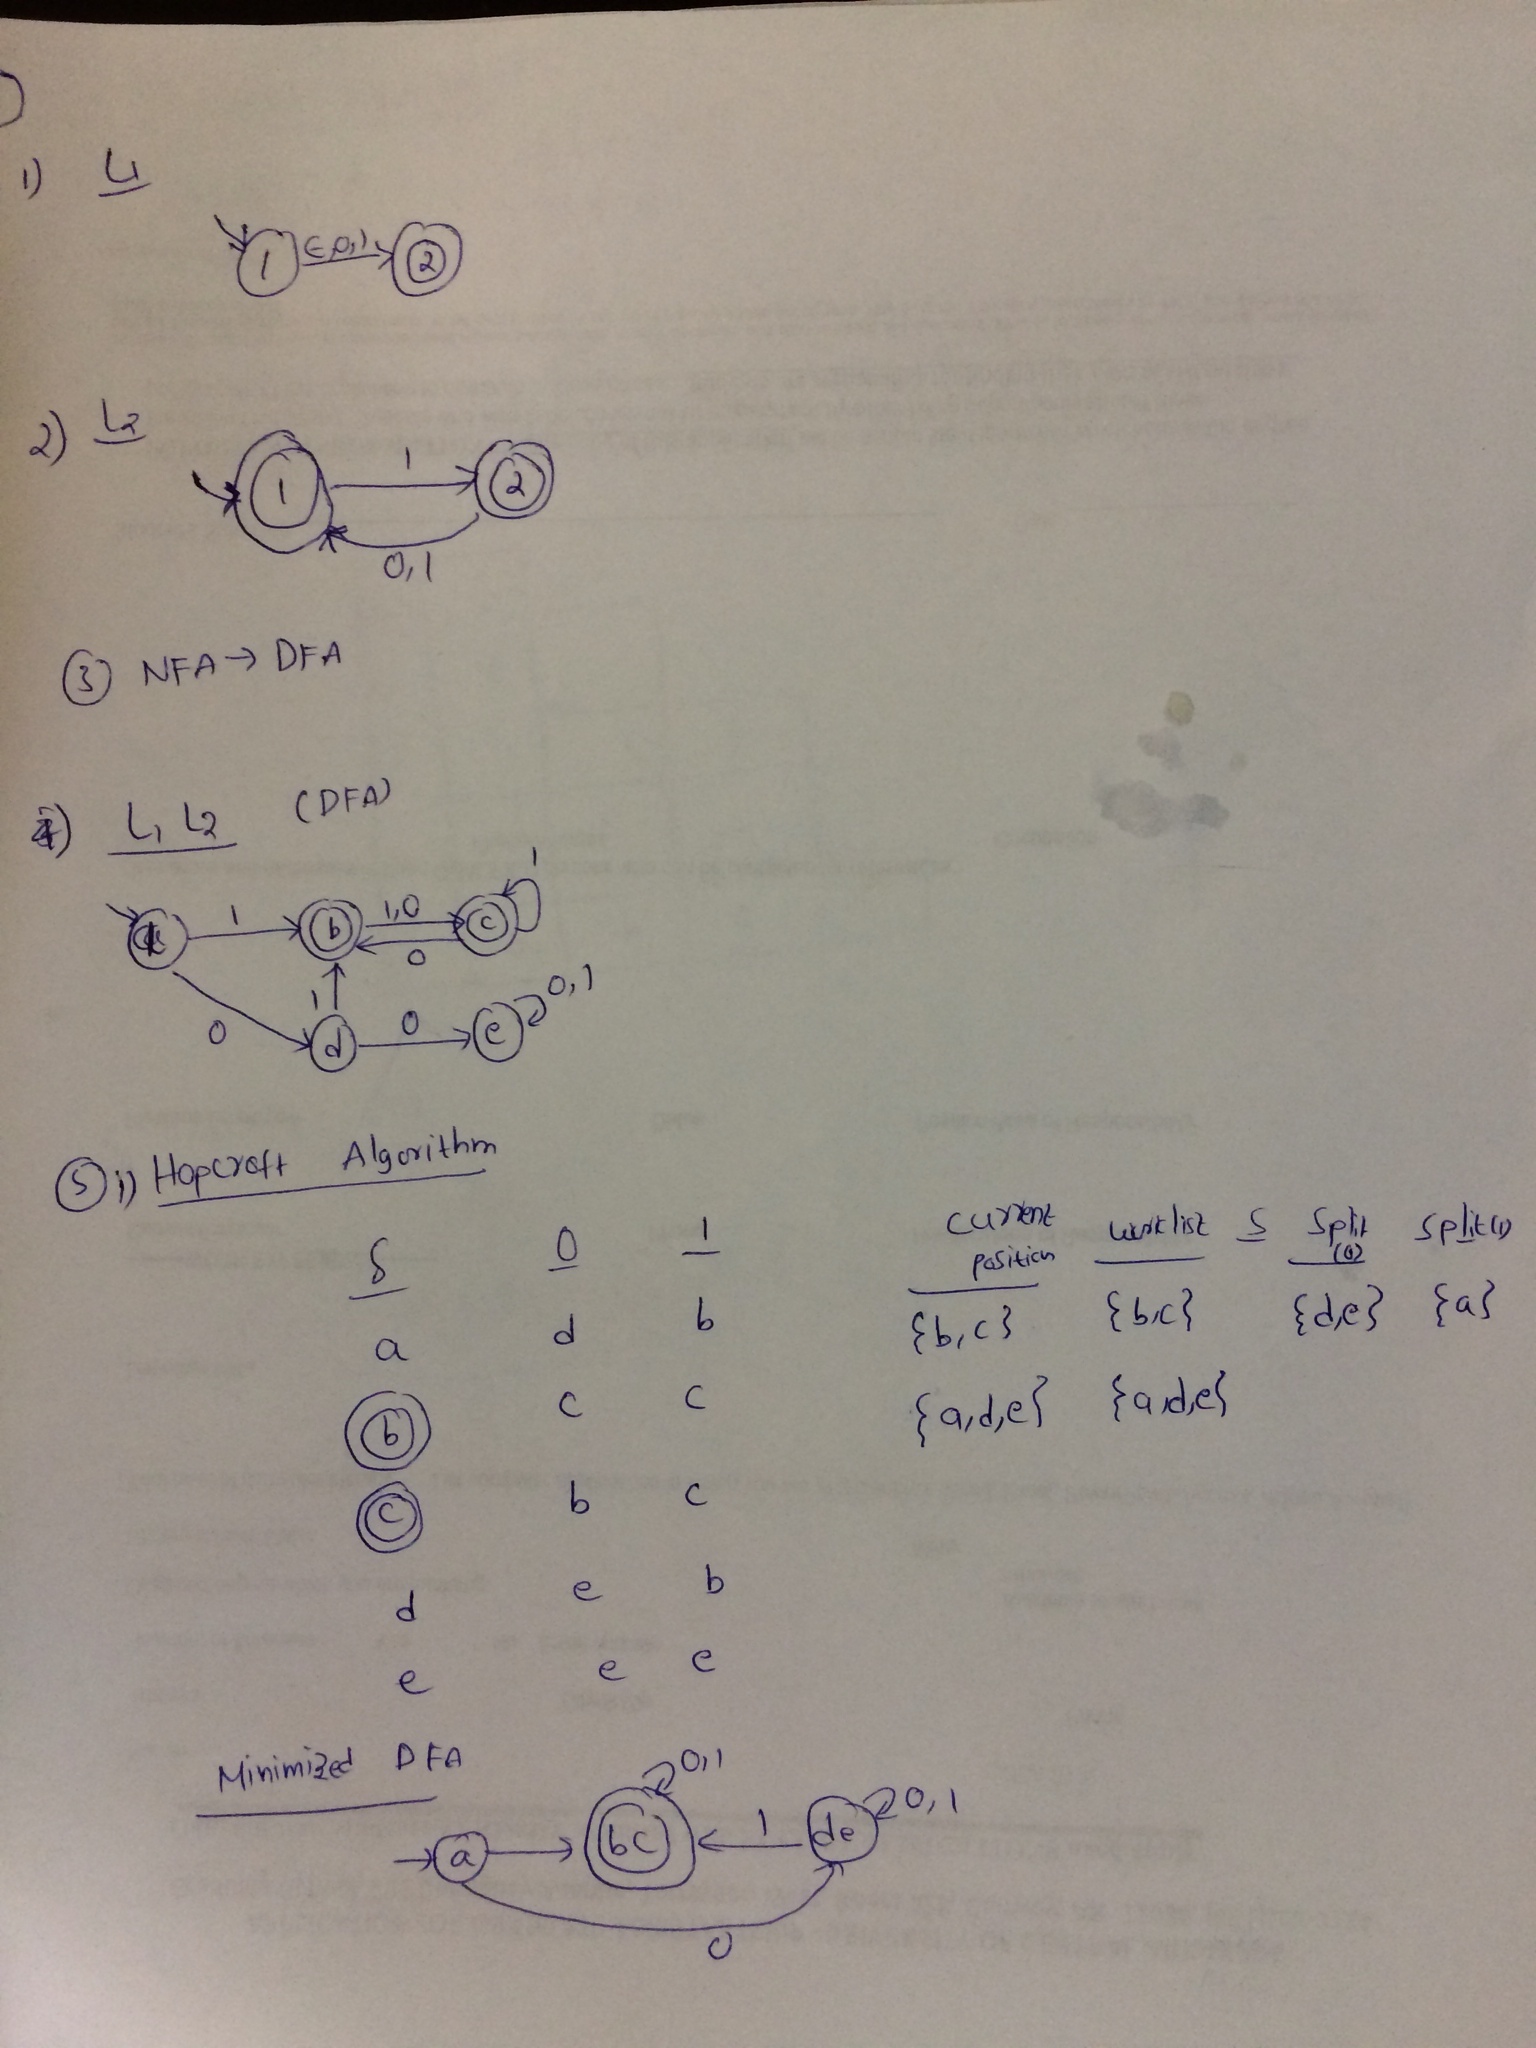 1) L1
1 ∈,0,1 2
2) L2
1 1 2
0,1
③ NFA → DFA
4) L1 L2 (DFA)
1
1 b 1,0 c
0
1
0 d 0 e 0,1
⑤ i) Hopcroft Algorithm
δ 0 1
a d b
b c c
c b c
d e b
e e e
current position worklist S Split (0) Split(1)
{b,c} {b,c} {d,e} {a}
{a,d,e} {a,d,e}
Minimized DFA
0,1
a bc 1 de 0,1
0